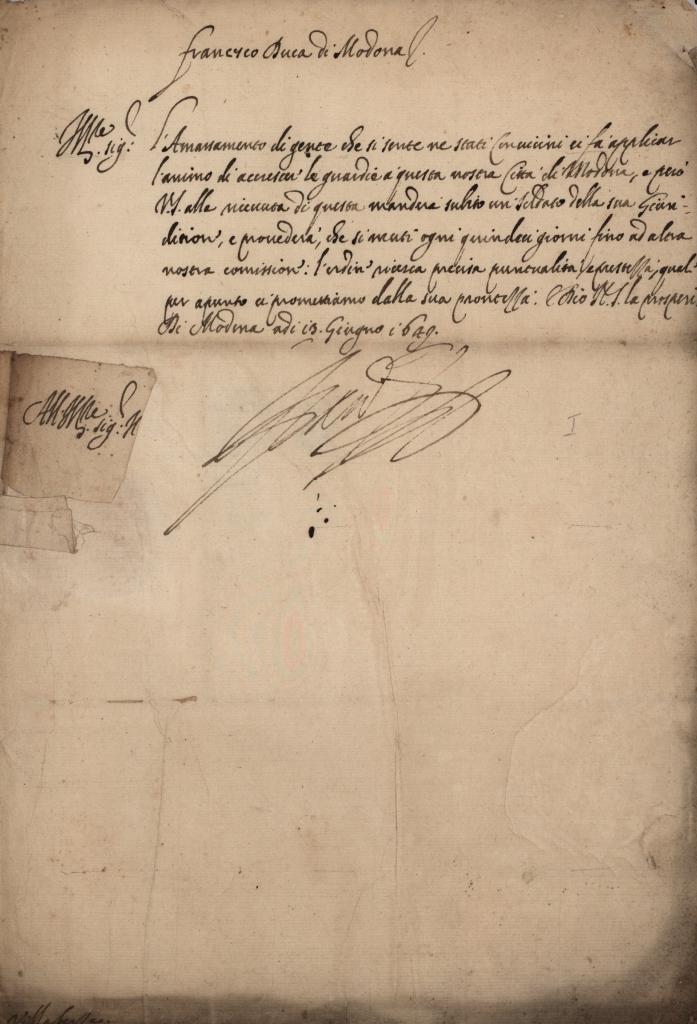 Francesco Duca di Modona
Ill.re sig.r
l'Amassamento di gente che si sente ne stati convicini ci fà applicar
l'animo di accrescer le guardie à questa nostra Città di Modona, e però
V.S. alla ricevuta di questa manderà subito un soldato della sua Giuri-
dition', e provederà, che si muti ogni quindeci giorni fino ad altra
nostra comission': l'ordin' ricerca precisa puntualità, e prestezza, qual
per apunto ci promettiamo dalla sua prontezza. E Dio V.S. la prosperi
Di Modona adi 13. Giugno 1649.
All' Ill.re sig.r N
I